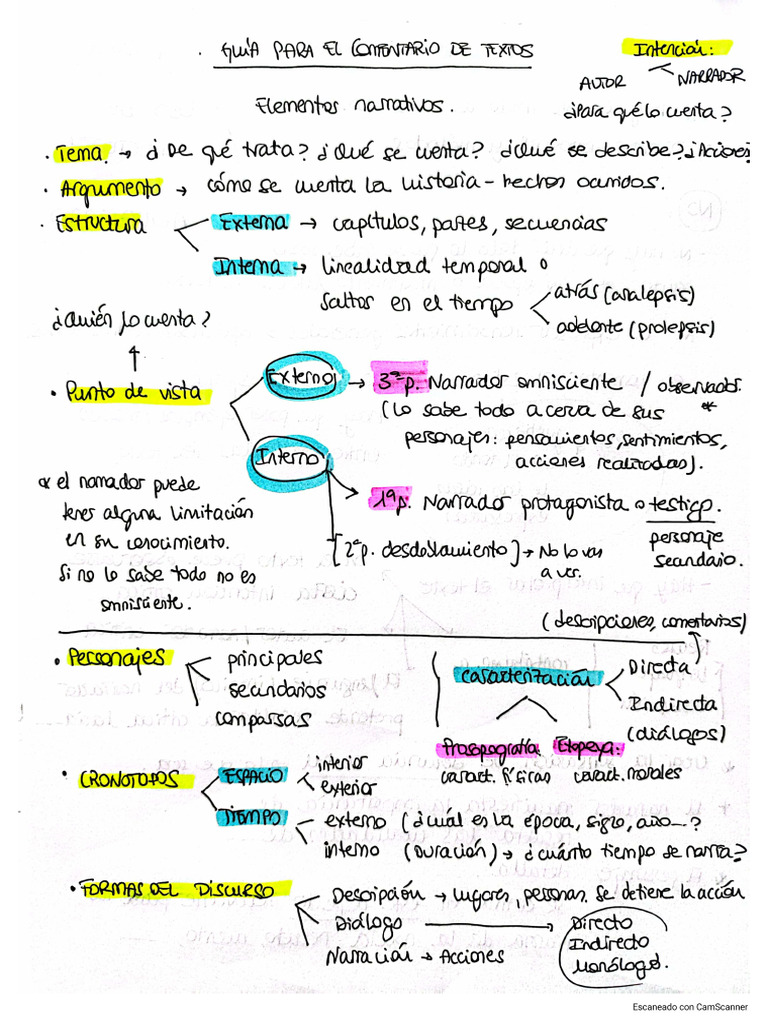 . GUÍA PARA EL COMENTARIO DE TEXTOS
Intención:
AUTOR NARRADOR
¿Para qué lo cuenta?
Elementos narrativos.
· Tema → ¿De qué trata? ¿Qué se cuenta? ¿Qué se describe? ¿Acciones?
· Argumento → cómo se cuenta la historia - hechos ocurridos.
· Estructura
Externa → capítulos, partes, secuencias
Interna → linealidad temporal o
saltos en el tiempo
atrás (analepsis)
adelante (prolepsis)
¿Quién lo cuenta?
↑
· Punto de vista
Externo → 3ª p. Narrador omnisciente / observador.
(Lo sabe todo acerca de sus *
personajes: pensamientos, sentimientos,
acciones realizadas).
Interno
→ 1ª p. Narrador protagonista o testigo.
personaje
secundario.
[2ª p. desdoblamiento] → No lo vas
a ver.
* el narrador puede
tener alguna limitación
en su conocimiento.
Si no lo sabe todo no es
omnisciente.
(descripciones, comentarios)
· Personajes
principales
secundarios
comparsas
caracterización
Directa
Indirecta
(diálogos)
Prosopografía:
caract. físicas
Etopeya:
caract. morales
· CRONOTOPOS
ESPACIO
interior
exterior
TIEMPO
externo (¿cuál es la época, siglo, año...?
interno (Duración) → ¿cuánto tiempo se narra?
· FORMAS DEL DISCURSO
Descripción → lugares, personas. Se detiene la acción
Diálogo →
Directo
Indirecto
Monólogo.
Narración → Acciones
Escaneado con CamScanner